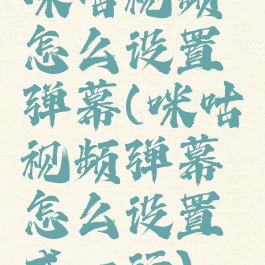 咪咕视频
怎么设置
弹幕(咪咕
视频弹幕
怎么设置